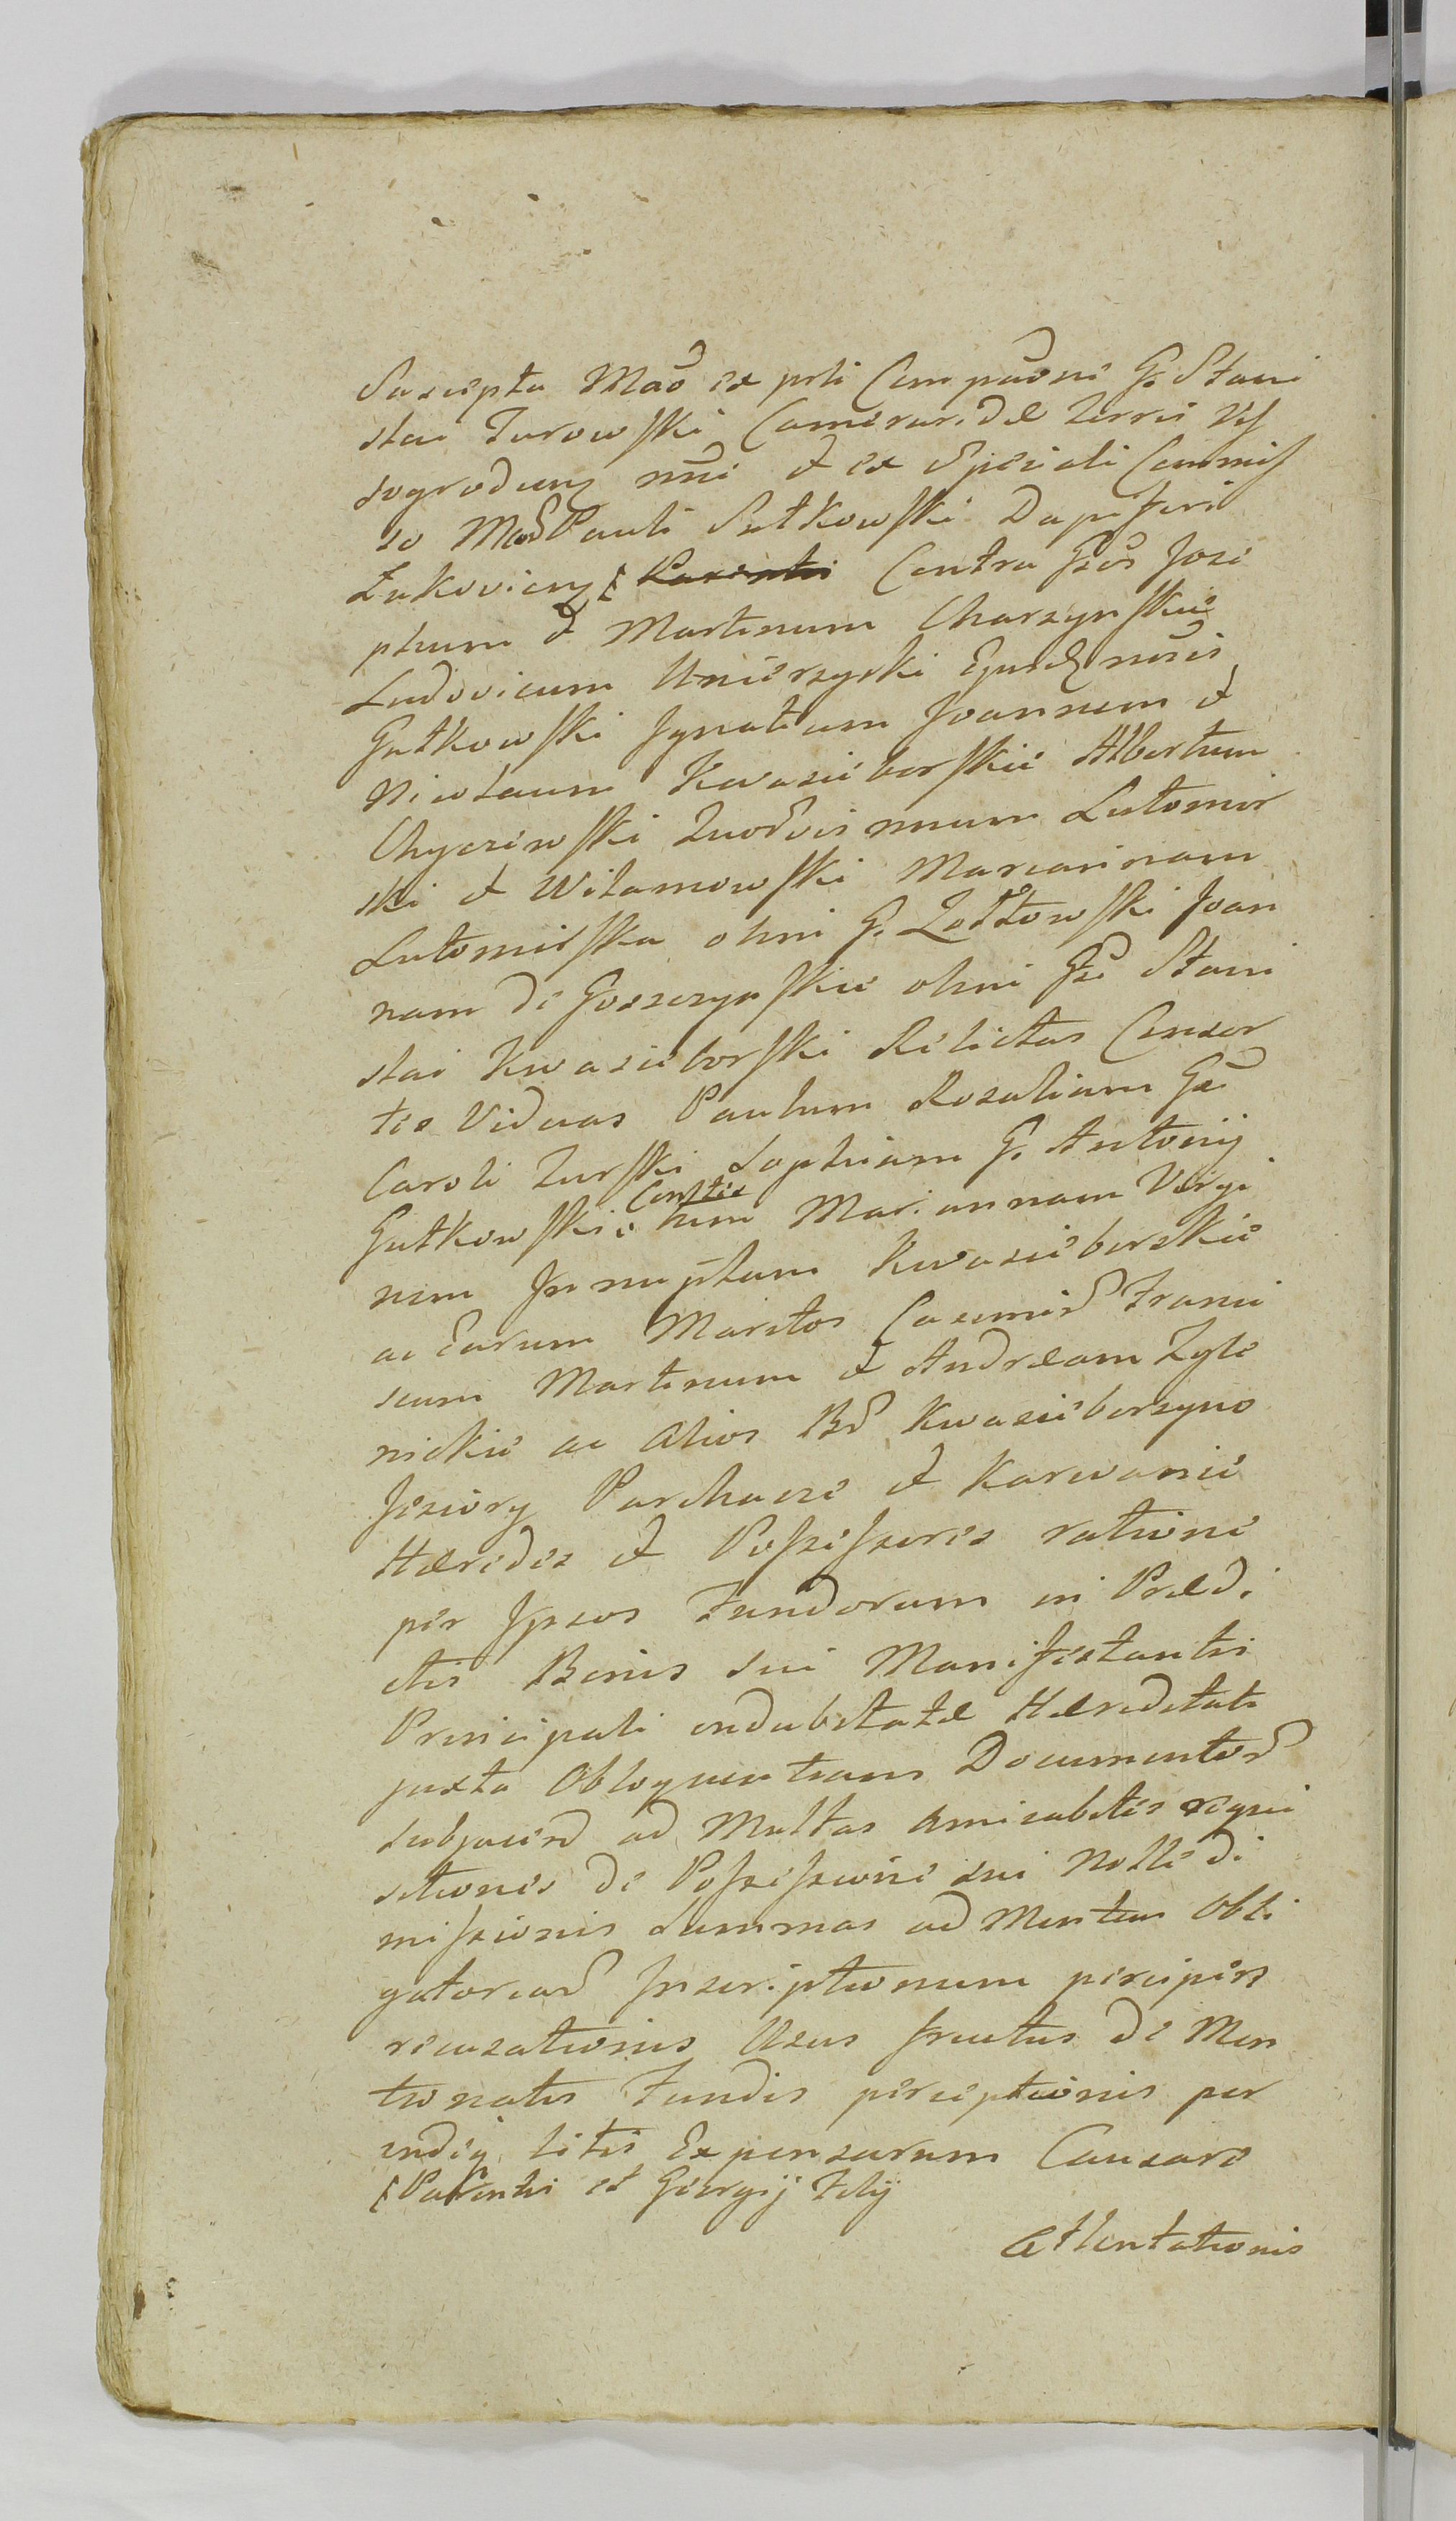 Suscepta Mão ex prti Comparõne G. Stani
slai Turowski Camerar. Dae Terrae Vis
sogroduen nni et ex Speciali Commis
so Mad Pauli Sutkowski Dapiferi
Lukovien Parentis Contra Gsos Jose
phum et Martinum Charzynskie
Ludovicum Unierzyski Ejusd nõis
Gutkowski Ignatium Joannem et
Nicolaum Kwasieborskie Albertum
Chyczewski Ludovicum Lutomir
ski et Witamowski Mariannam
Lutomirska olim G. Zołtowski Joan
nam de Goszczynskie olim Gsi Stani
slai Kwasieborski Relictas Consor
tes Viduas Paulum Rosaliam Gsi
Caroli Turski Sophiam G. Antonij
Gutkowski Consttes tum Mariannam Virgi
nem Innuptam Kwasieborskie
ac Earum Maritos Casimir Franci
scum Martinum et Andream Zyle
nickie ac Alios Bd Kwasieborzyno
Jeziory Parchacze et Karwanie
Haeredes et Possessores ratione
per Ipsos Fundorum in Praedi
ctis Bonis sui Manifestantis
Principali indubitatae Haereditati
juxta Obloquentiam Documentor
subjacien ad Multas Amicabiles requi
sitiones de Possessione sui Nolle di
missionis Summas ad Mentem Obli
gatoriar Inscriptionum percipere
recusationis Usus fructus de Men
tionatis Fundis perceptionis per
indeq litis Expensarum Causare
Parentis et Georgij Filij
Attentationis